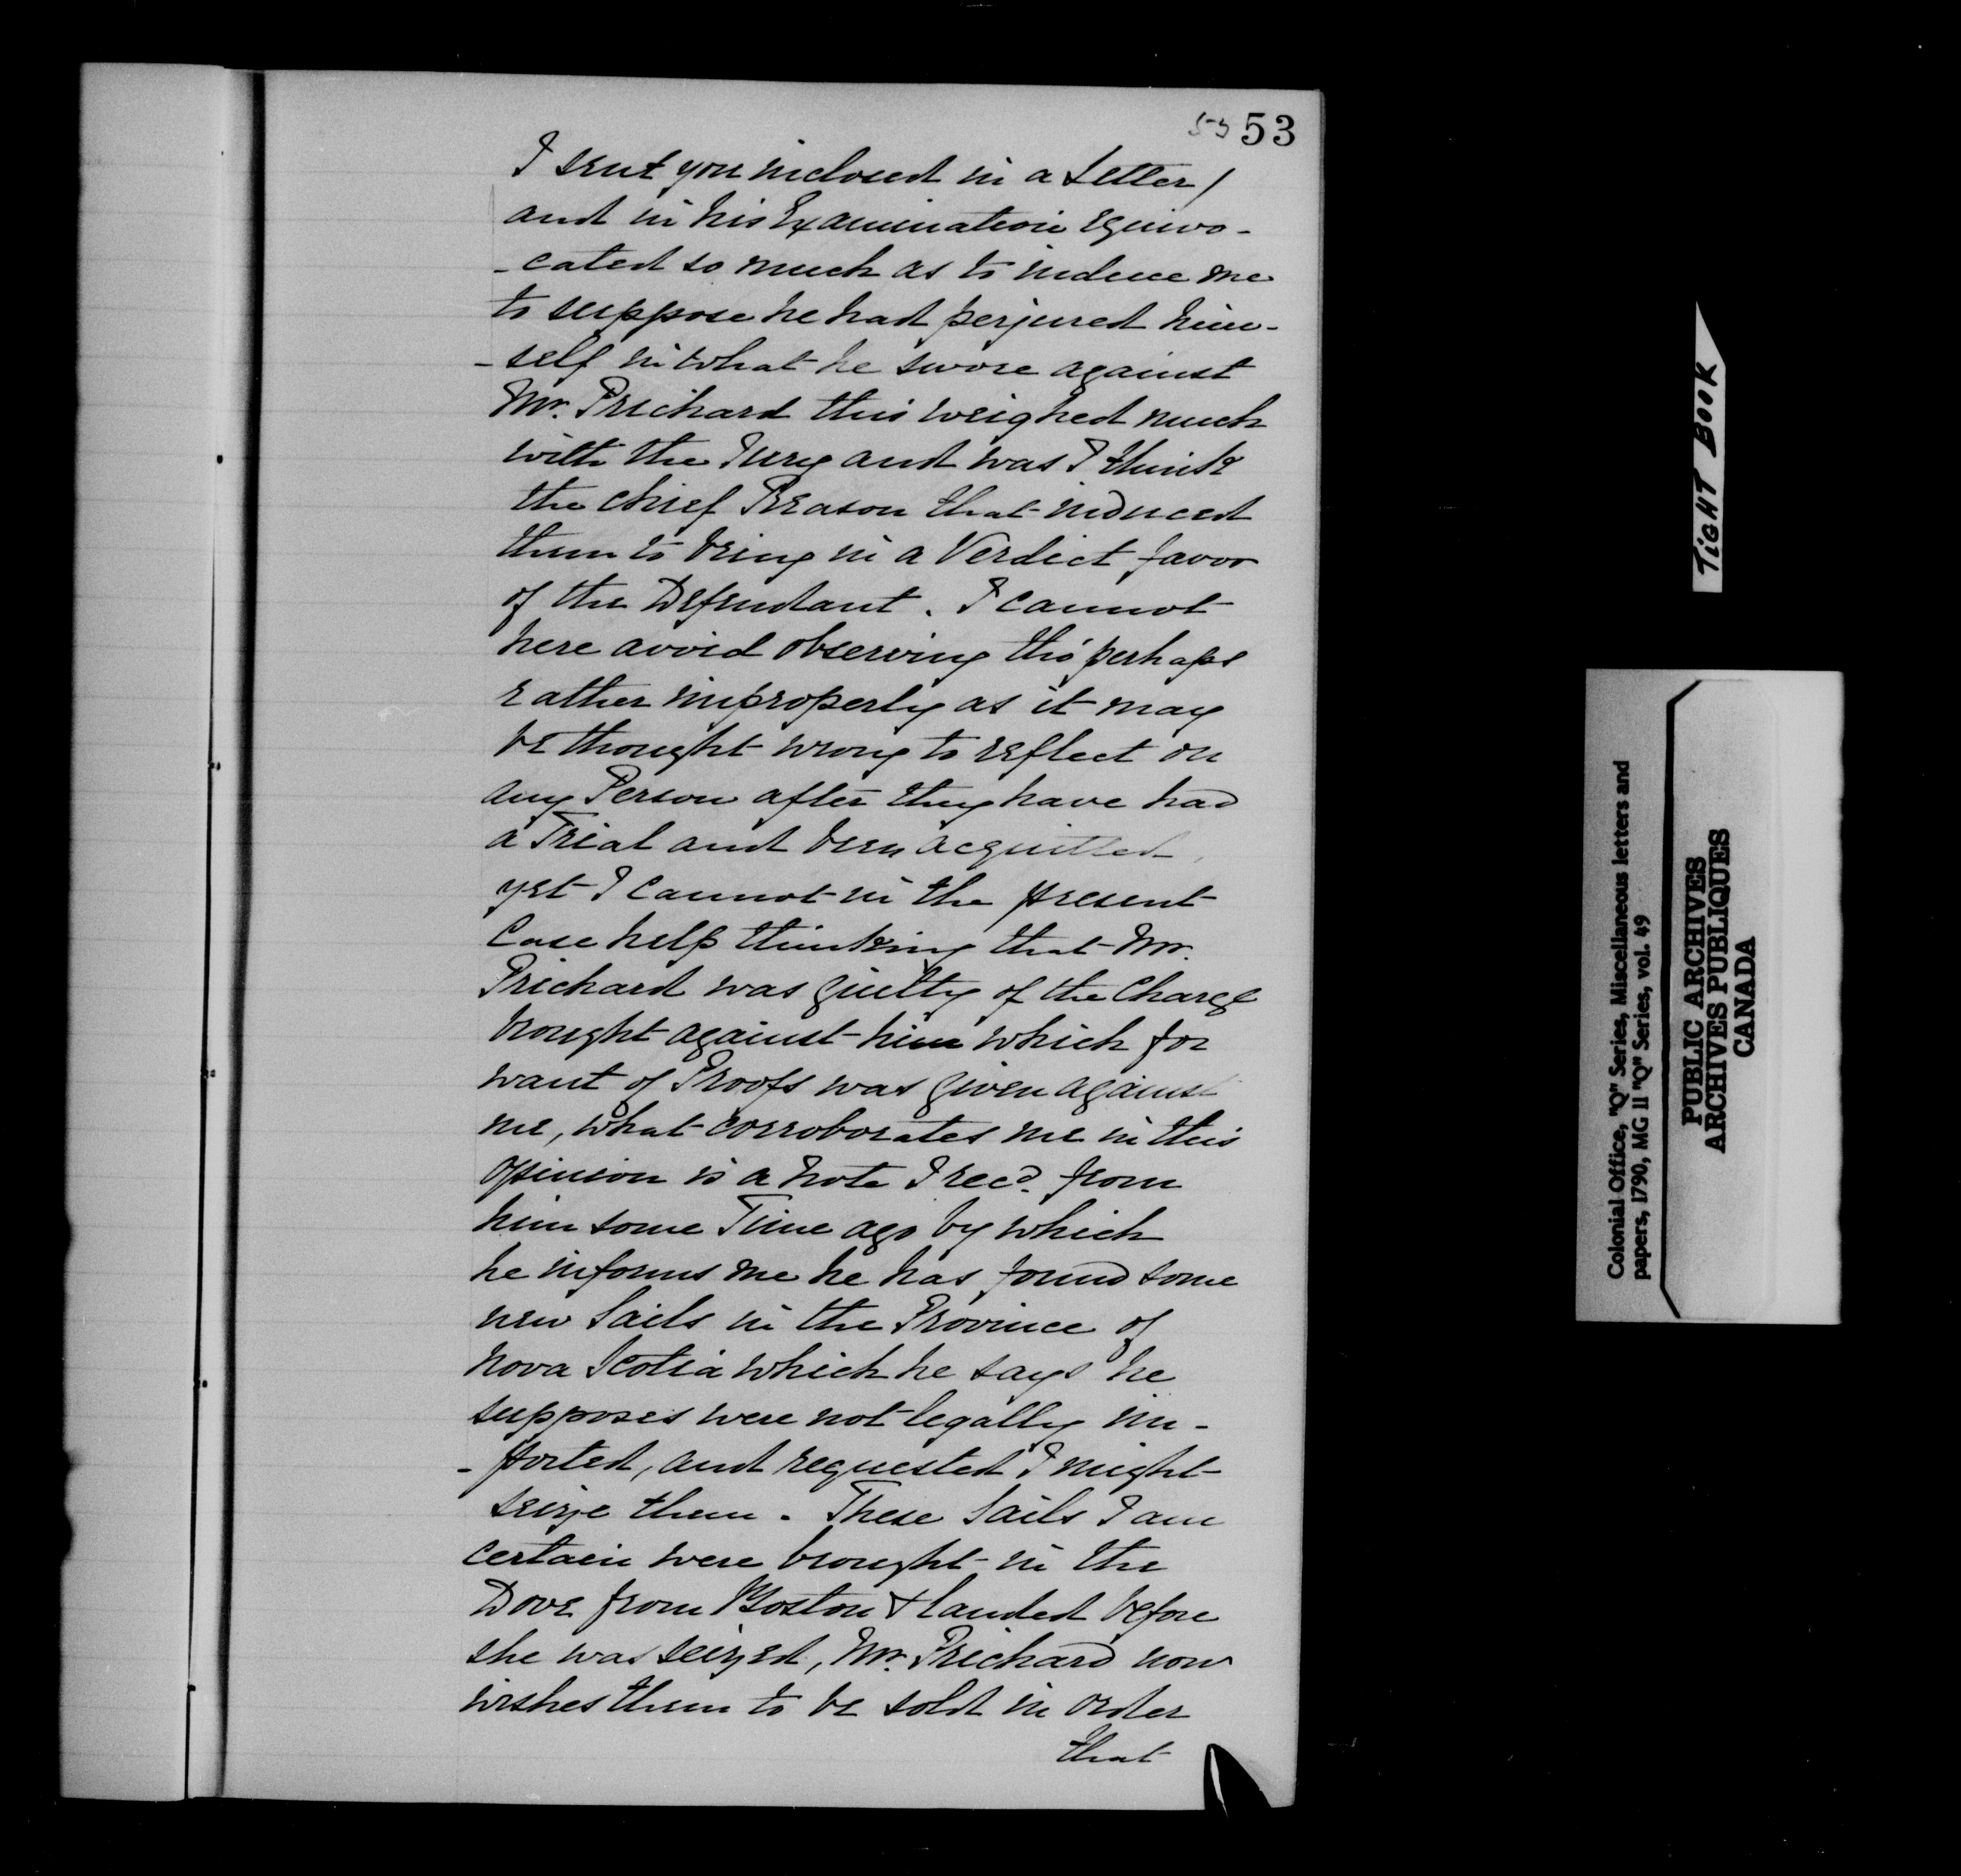 53 53
I sent you inclosed in a Letter/
and in his Examination equivo-
-cated so much as to induce me
to suppose he had perjured him-
-self in what he swore against
Mr. Prichard this weighed much
with the Jury and was I think
the chief Reason that induced
them to bring in a Verdict favor
of the Defendant. I cannot
here avoid observing tho' perhaps
rather improperly as it may
be thought wrong to reflect on
any Person after they have had
a Trial and been acquitted,
yet I cannot in the present
Case help thinking that Mr.
Prichard was guilty of the Charge
brought against him which for
want of Proofs was given against
me, what corroborates me in this
opinion is a note I recd. from
him some Time ago by which
he informs me he has found some
new Sails in the Province of
Nova Scotia which he says he
supposes were not legally im-
-ported, and requested I might
seize them. These Sails I am
certain were brought in the
Dove from Boston & landed before
she was seized, Mr. Prichard now
wishes them to be sold in order
that
TIGHT BOOK
Colonial Office, "Q" Series, Miscellaneous letters and
papers, 1790, MG 11 "Q" Series, vol. 49
PUBLIC ARCHIVES
ARCHIVES PUBLIQUES
CANADA